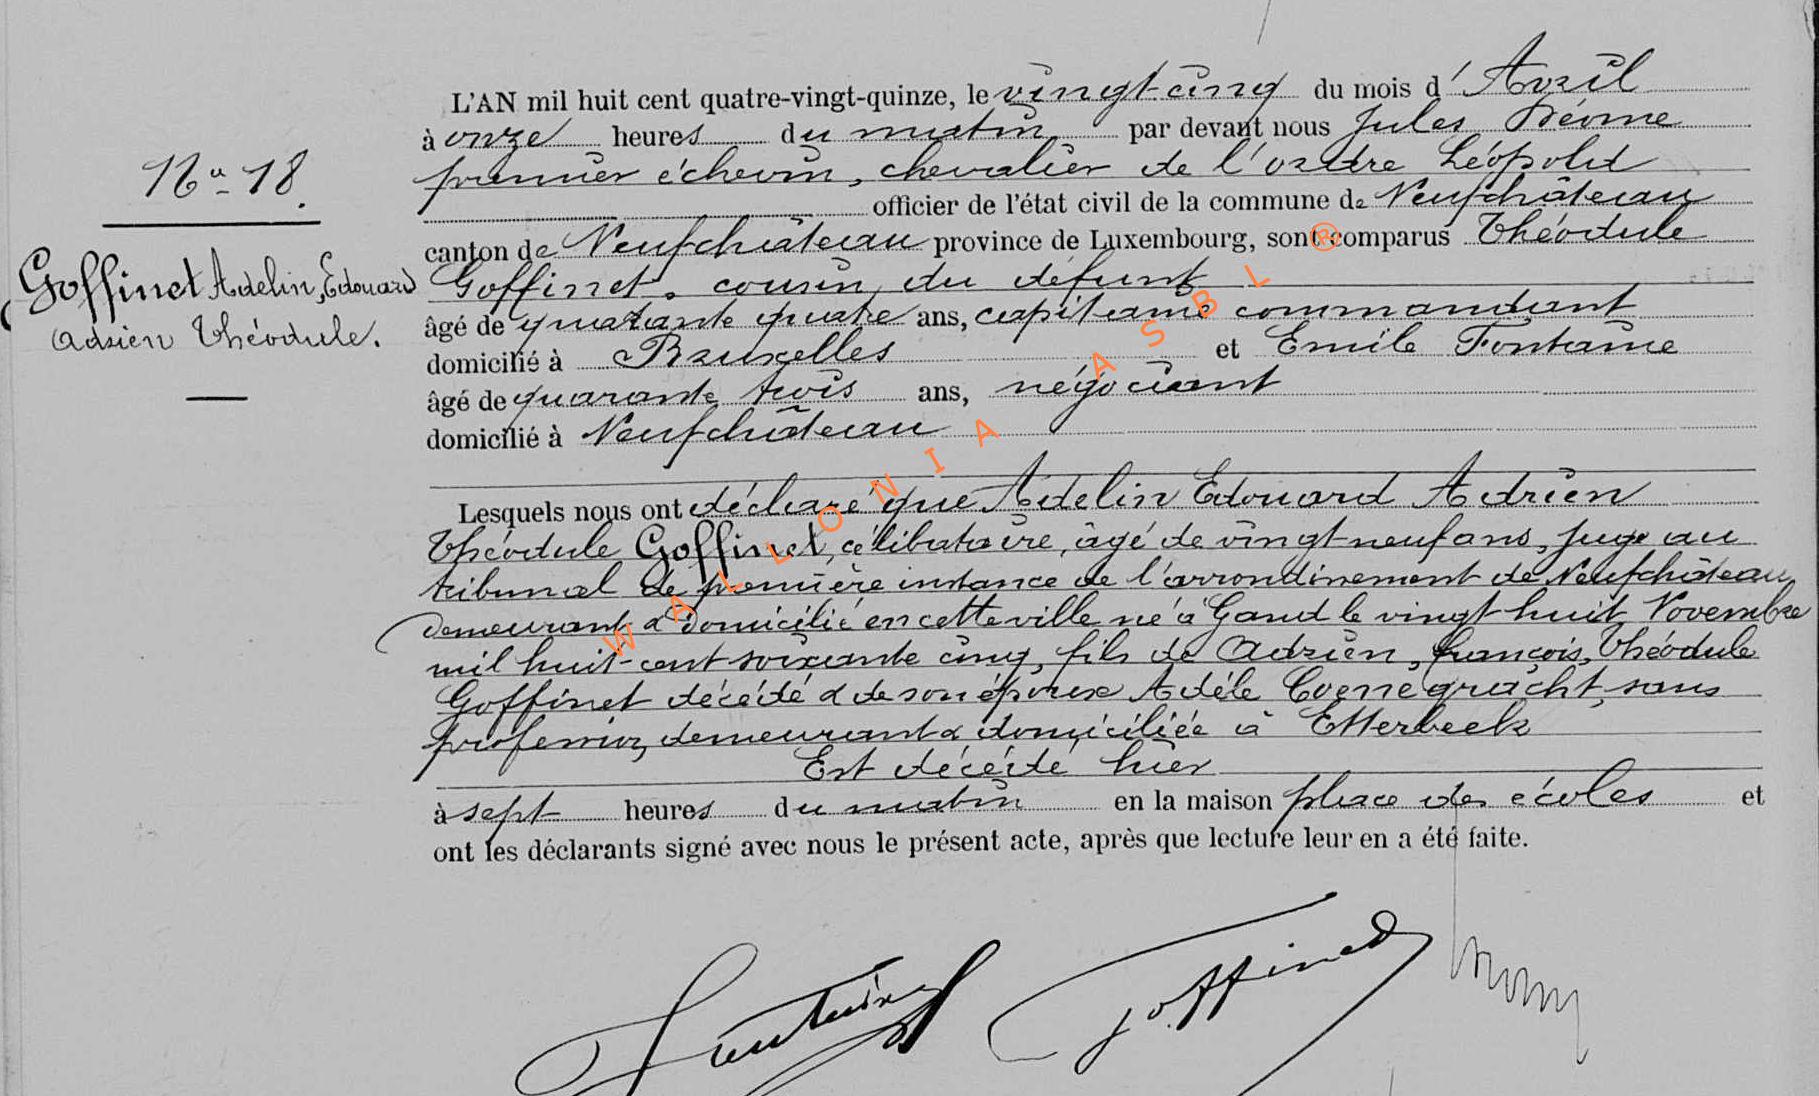 L'AN mil huit cent quatre-vingt-quinze, le vingt-cinq du mois d' Avril
à onze heures du matin par devant nous Jules
premier échevin, chevalier de l'ordre Léopold
Nº 18.
officier de l'état civil de la commune de Neufchâteau
canton de Neufchâteau province de Luxembourg, sont comparus Théodule
Goffinet Adelin, Edouard
Adrien Théodule.
Goffinet, cousin du défunt
âgé de quarante quatre ans, capitaine commandant
domicilié à Bruxelles et Emile Fontaine
âgé de quarante trois ans, négociant
domicilié à Neufchâteau
Lesquels nous ont déclaré que Adelin Edouard Adrien
Théodule Goffinet, célibataire, âgé de vingt-neuf ans, juge au
tribunal de première instance de l'arrondissement de Neufchâteau
demeurant & domicilié en cette ville né à Gand le vingt huit Novembre
mil huit-cent soixante cinq, fils de Adrien, François, Théodule
Goffinet décédé & de son épouse Adèle Coenegracht, sans
profession, demeurant & domiciliée à Etterbeek
Est décédé hier
à sept heures du matin en la maison place des écoles et
ont les déclarants signé avec nous le présent acte, après que lecture leur en a été faite.
Fontaine Goffinet
WALLONIA ASBL ®